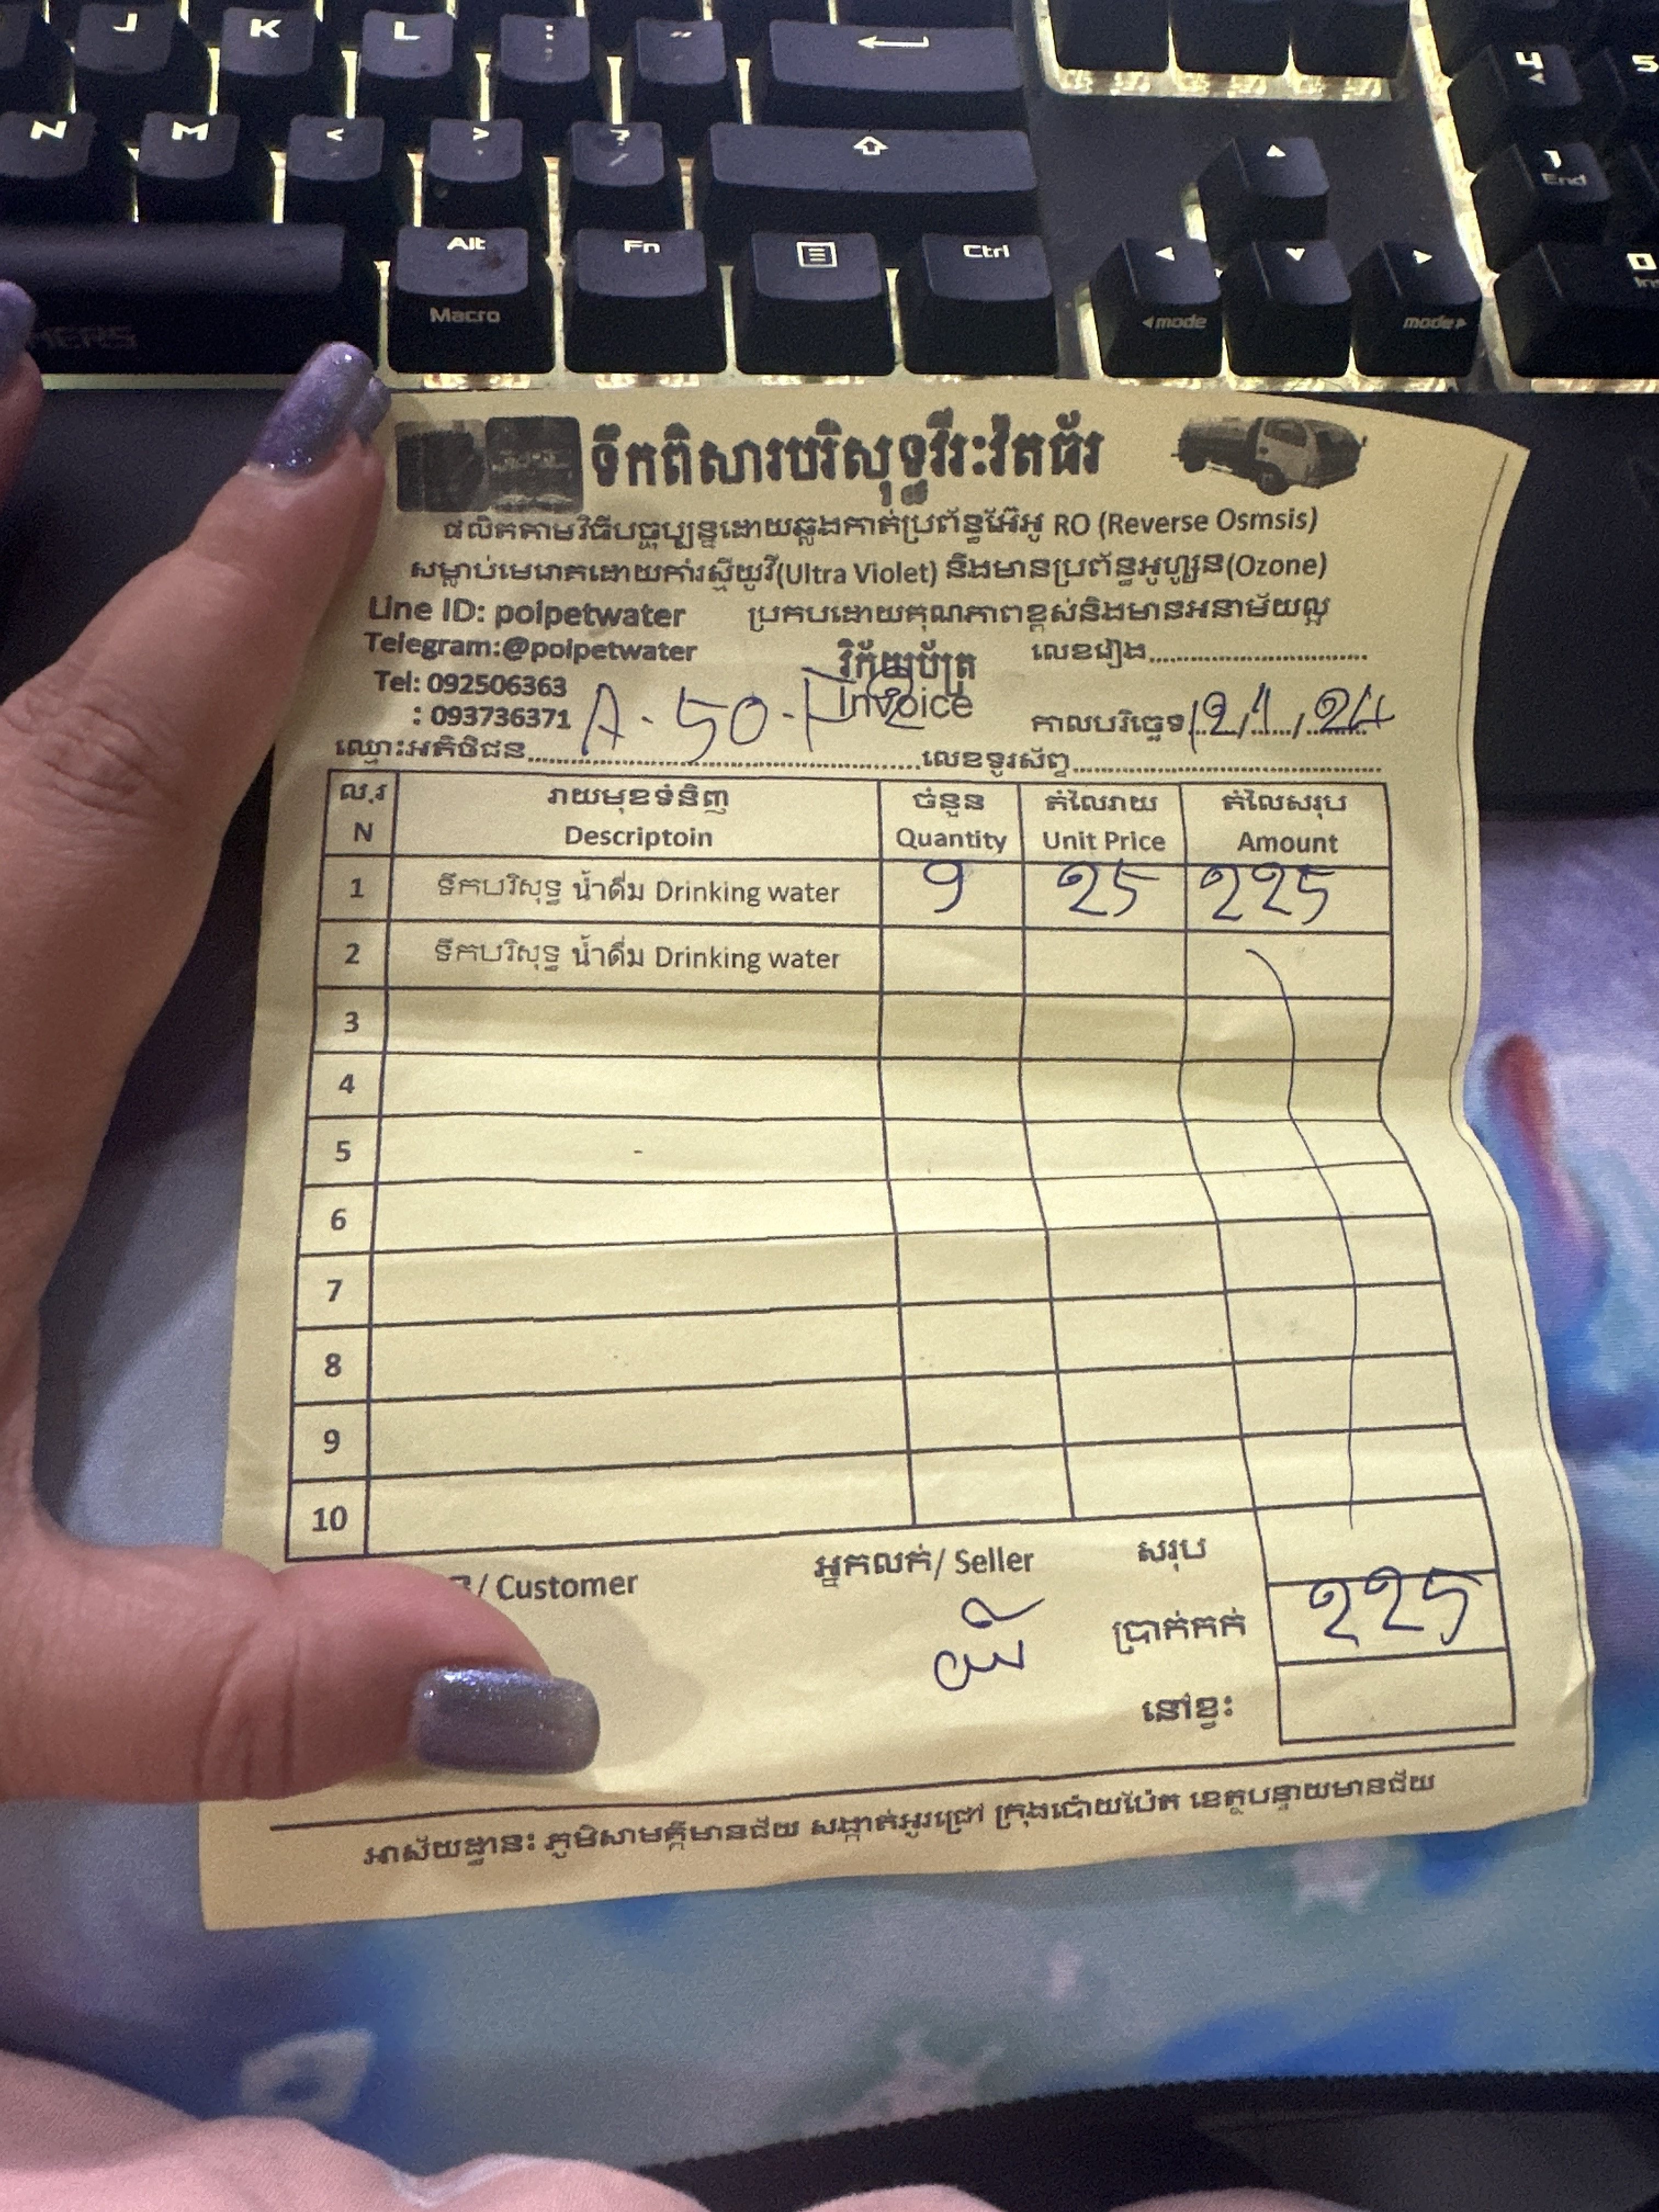 J K L : ; "
N M < , > . ? /
Alt Fn Ctrl
Macro
◄mode mode►
4 5
1 End
0
ទឹកពិសារបរិសុទ្ធវីរៈវ៉តធ័រ
ផលិតតាមវិធីបច្ចុប្បន្នដោយឆ្លងកាត់ប្រព័ន្ធអ៊ែរអូ RO (Reverse Osmsis)
សម្លាប់មេរោគដោយកាំរស្មីយូវី(Ultra Violet) និងមានប្រព័ន្ធអូហ្សូន(Ozone)
Line ID: poipetwater ប្រកបដោយគុណភាពខ្ពស់និងមានអនាម័យល្អ
Telegram:@poipetwater វិក្ក័យប័ត្រ លេខរៀង
Tel: 092506363 Invoice
: 093736371 A-50-F2 កាលបរិច្ឆេទ 12/1/24
ឈ្មោះអតិថិជន លេខទូរស័ព្ទ
ល.រ រាយមុខទំនិញ ចំនួន តំលៃរាយ តំលៃសរុប
N Descriptoin Quantity Unit Price Amount
1 ទឹកបរិសុទ្ធ น้ำดื่ม Drinking water 9 25 225
2 ទឹកបរិសុទ្ធ น้ำดื่ม Drinking water
3
4
5
6
7
8
9
10
/ Customer អ្នកលក់/ Seller សរុប
ប្រាក់កក់ 225
នៅខ្វះ
អាស័យដ្ឋានៈ ភូមិសាមគ្គីមានជ័យ សង្កាត់អូរជ្រៅ ក្រុងប៉ោយប៉ែត ខេត្តបន្ទាយមានជ័យ